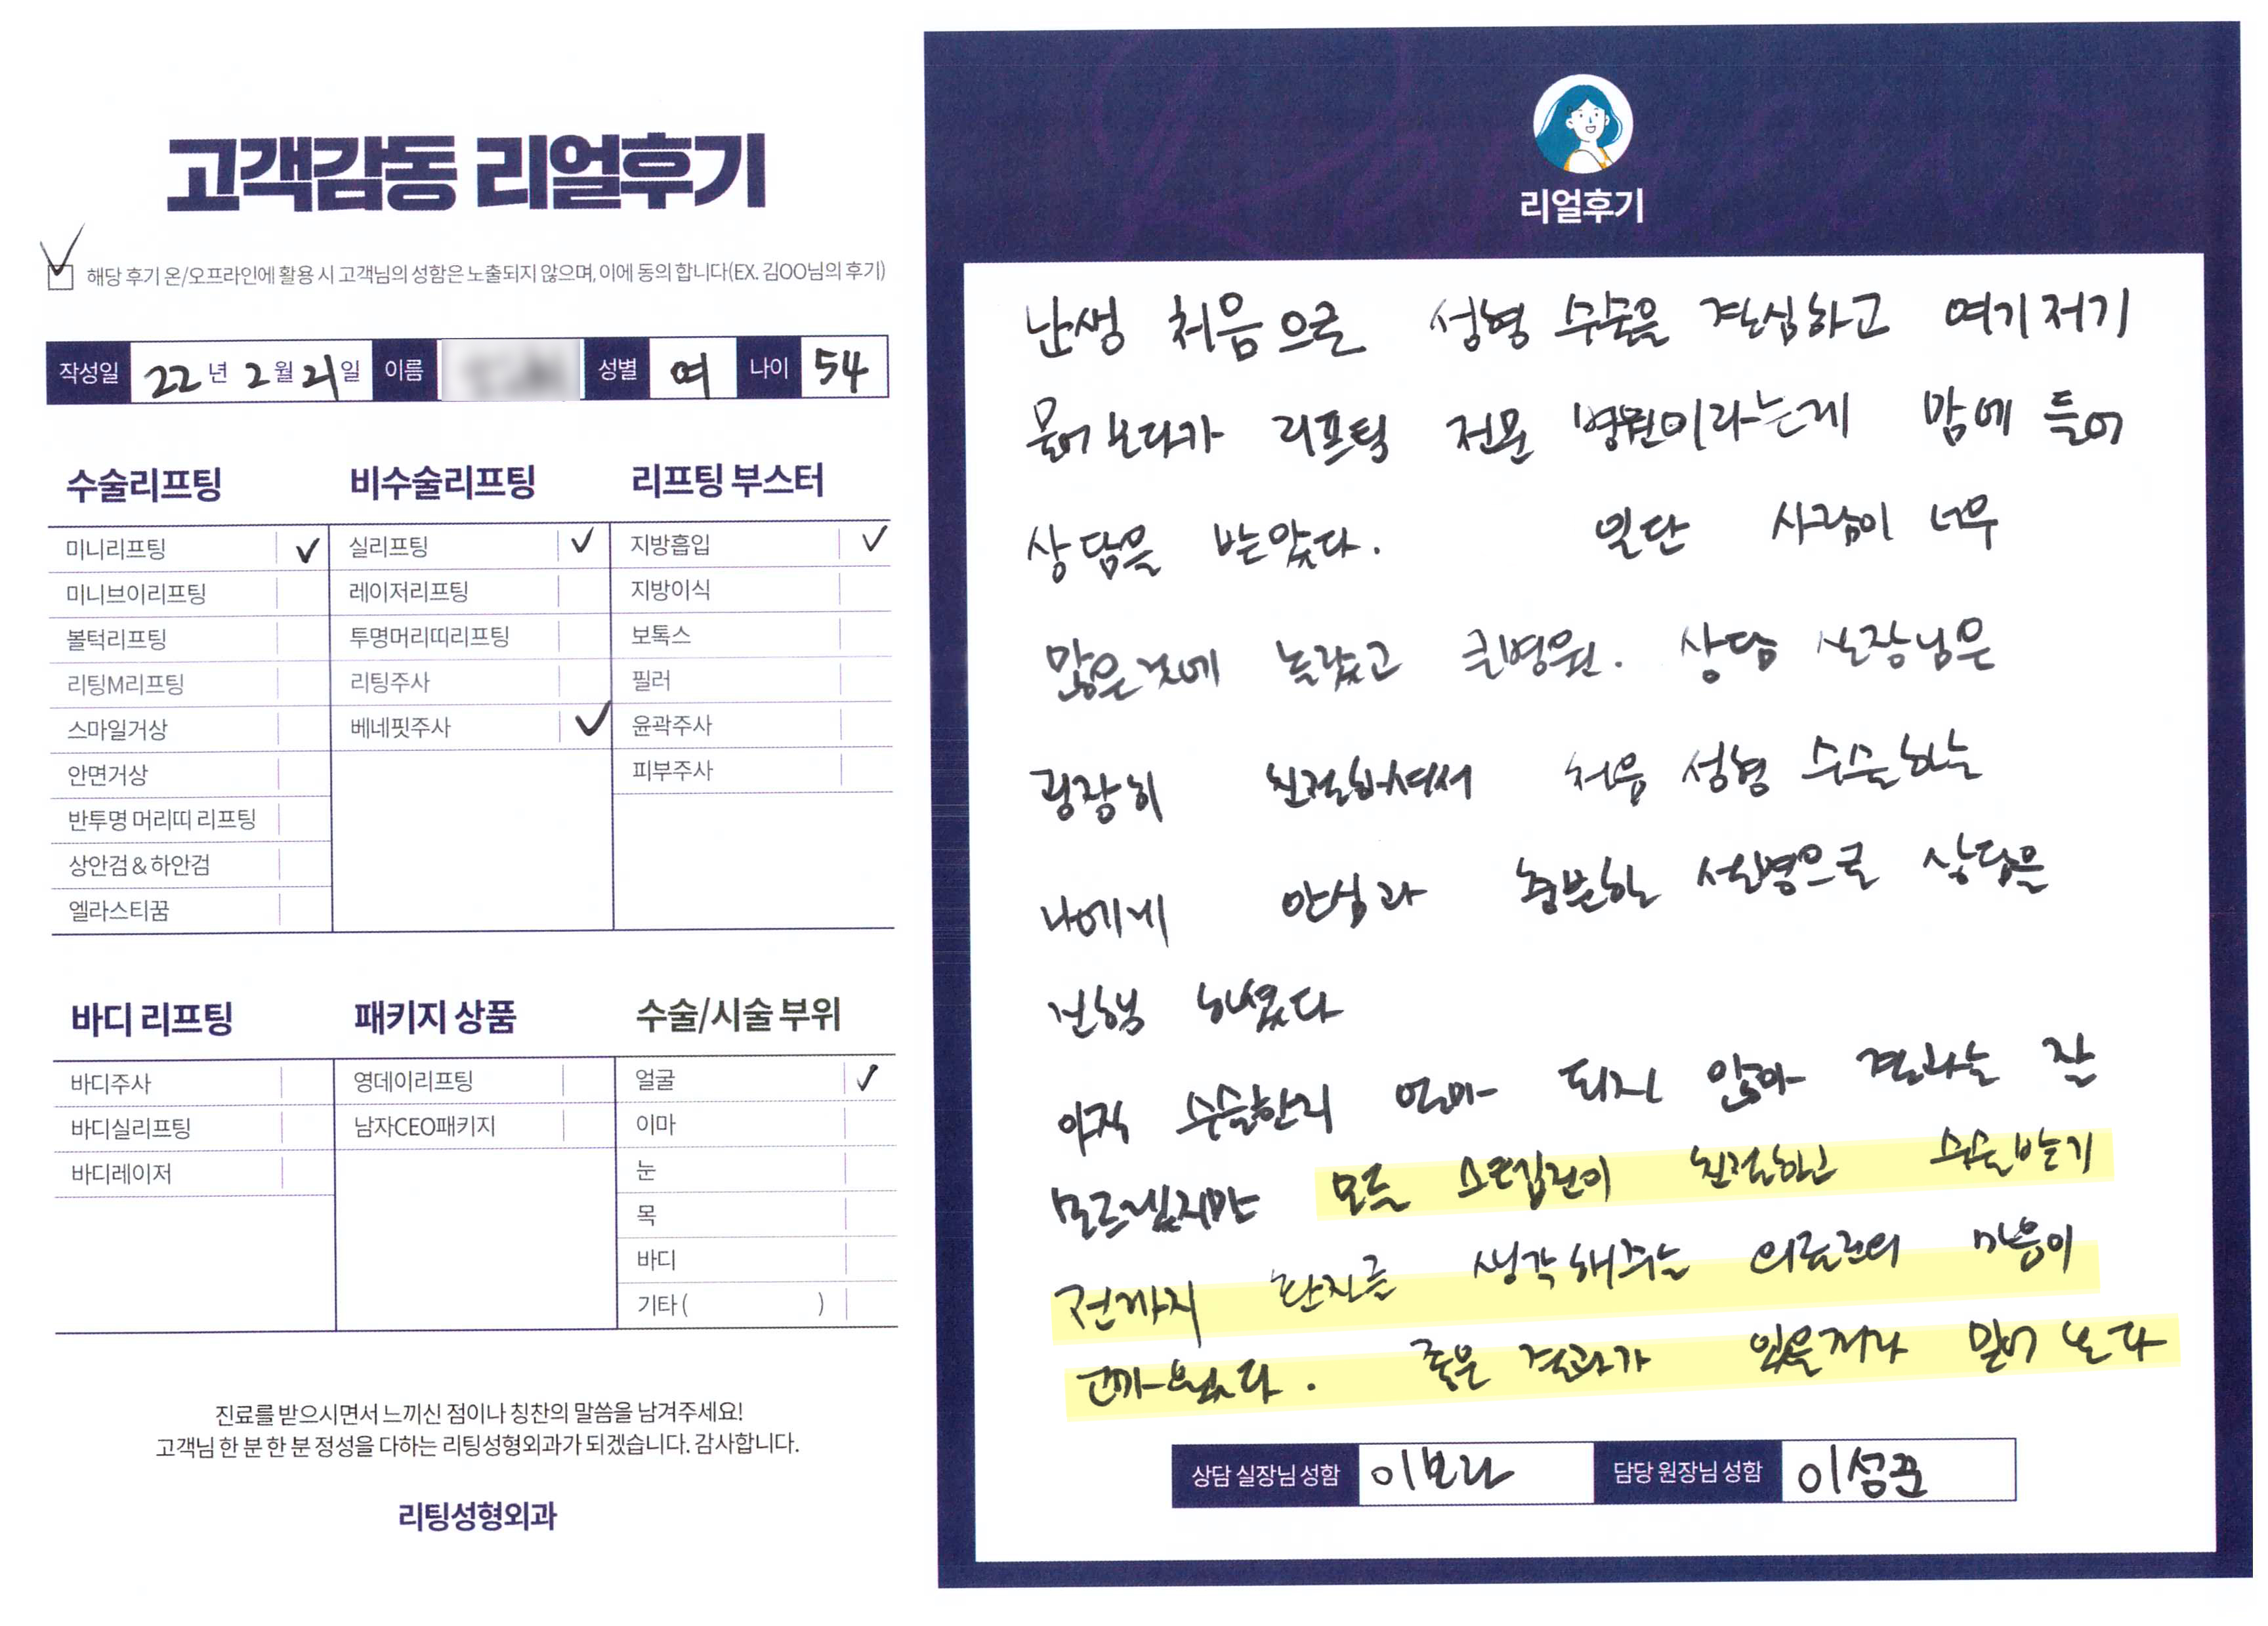 고객감동 리얼후기
해당 후기 온/오프라인에 활용 시 고객님의 성함은 노출되지 않으며, 이에 동의 합니다(EX. 김OO님의 후기)
작성일 22년 2월 21일 이름 성별 여 나이 54
수술리프팅
미니리프팅 ✓
미니브이리프팅
볼턱리프팅
리팅M리프팅
스마일거상
안면거상
반투명 머리띠 리프팅
상안검 & 하안검
엘라스티꿈
비수술리프팅
실리프팅 ✓
레이저리프팅
투명머리띠리프팅
리팅주사
베네핏주사 ✓
리프팅 부스터
지방흡입 ✓
지방이식
보톡스
필러
윤곽주사
피부주사
바디 리프팅
바디주사
바디실리프팅
바디레이저
패키지 상품
영데이리프팅
남자CEO패키지
수술/시술 부위
얼굴 ✓
이마
눈
목
바디
기타 ( )
진료를 받으시면서 느끼신 점이나 칭찬의 말씀을 남겨주세요!
고객님 한 분 한 분 정성을 다하는 리팅성형외과가 되겠습니다. 감사합니다.
리팅성형외과
리얼후기
난생 처음으로 성형 수술을 결심하고 여기저기
물어보다가 리프팅 전문 병원이라는게 맘에 들어
상담을 받았다. 일단 사람이 너무
많은것에 놀랐고 큰병원. 상담 실장님은
굉장히 친절하셔서 처음 성형 수술하는
나에게 안심과 충분한 설명으로 상담을
진행 하셨다
아직 수술한지 얼마 되지 않아 결과는 잘
모르겠지만 모든 스텝진이 친절하고 수술받기
전까지 환자를 생각해주는 의료진의 마음이
고마웠다. 좋은 결과가 있을거라 믿어 본다
상담 실장님 성함 이보라 담당 원장님 성함 이성준